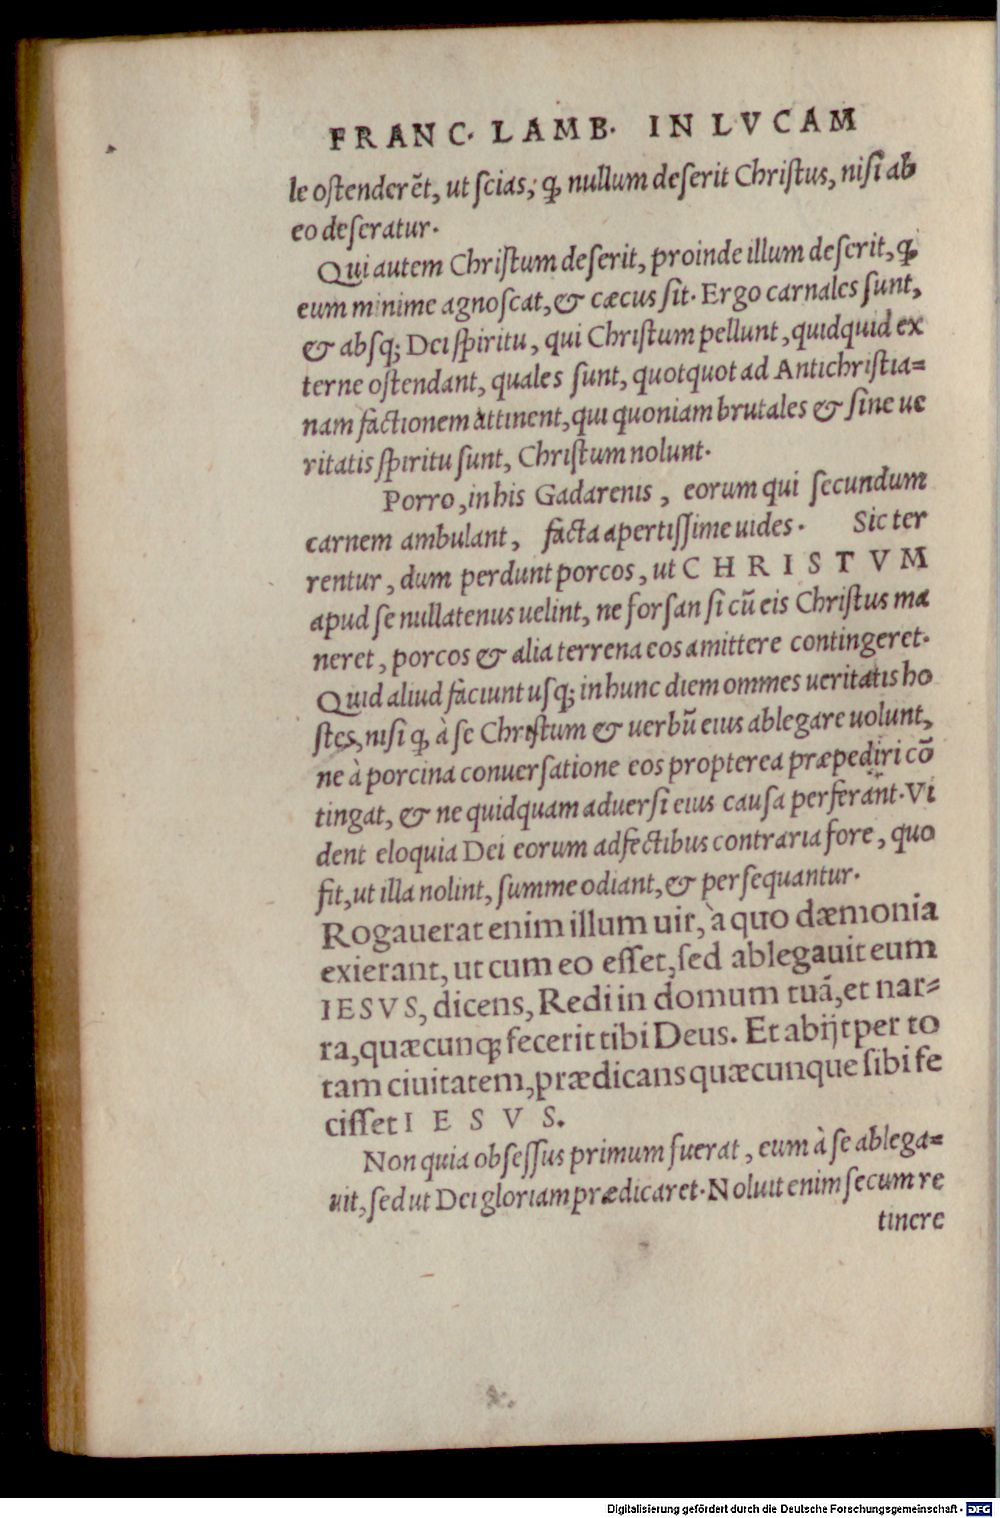 FRANC. LAMB. IN LVCAM
le ostenderēt, ut scias; ꝙ nullum deserit Christus, nisi ab
eo deseratur.
Qui autem Christum deserit, proinde illum deserit, ꝙ
eum minime agnoscat, & cæcus sit. Ergo carnales sunt,
& absq; Dei spiritu, qui Christum pellunt, quidquid ex
terne ostendant, quales sunt, quotquot ad Antichristia=
nam factionem attinent, qui quoniam brutales & sine ue
ritatis spiritu sunt, Christum nolunt.
Porro, in his Gadarenis, eorum qui secundum
carnem ambulant, facta apertissime uides. Sic ter
rentur, dum perdunt porcos, ut CHRISTVM
apud se nullatenus uelint, ne forsan si cū eis Christus ma
neret, porcos & alia terrena eos amittere contingeret.
Quid aliud faciunt usq; in hunc diem ommes ueritatis ho
stes, nisi ꝙ à se Christum & uerbū eius ablegare uolunt,
ne à porcina conuersatione eos propterea præpediri cō
tingat, & ne quidquam aduersi eius causa perferant. Vi
dent eloquia Dei eorum adfectibus contraria fore, quo
fit, ut illa nolint, summe odiant, & persequantur.
Rogauerat enim illum uir, à quo dæmonia
exierant, ut cum eo esset, sed ablegauit eum
IESVS, dicens, Redi in domum tuā, et nar=
ra, quæcunq; fecerit tibi Deus. Et abijt per to
tam ciuitatem, prædicans quæcunque sibi fe
cisset IESVS.
Non quia obsessus primum fuerat, eum à se ablega=
uit, sed ut Dei gloriam prædicaret. Noluit enim secum re
tinere
Digitalisierung gefördert durch die Deutsche Forschungsgemeinschaft - DFG